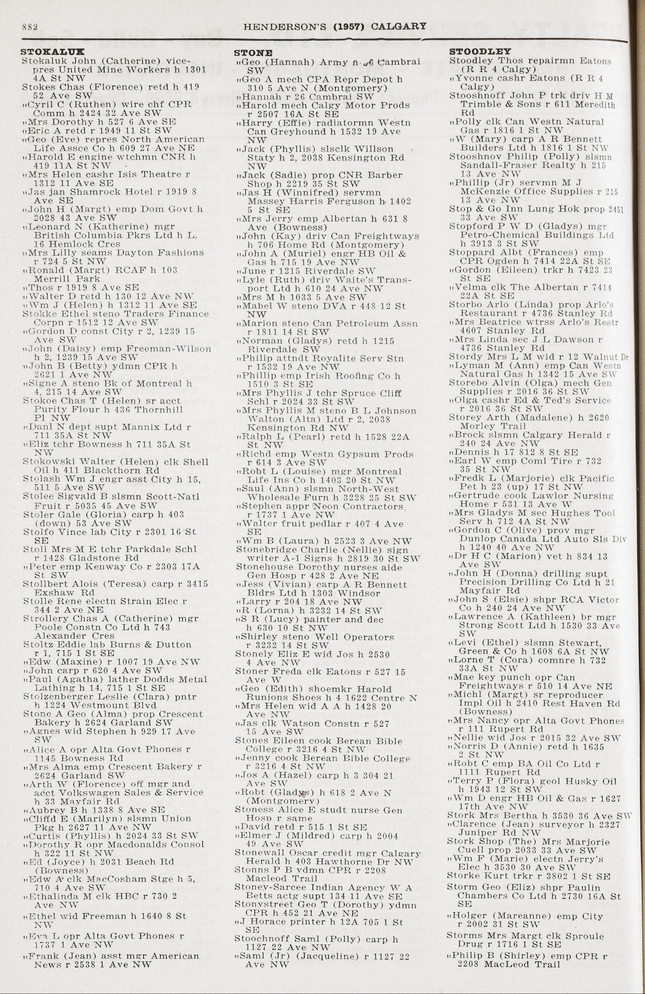 882
HENDERSON'S (1957) CALGARY
STOKALUK
Stokaluk John (Catherine) vice-
pres United Mine Workers h 1301
4A St NW
Stokes Chas (Florence) retd h 419
52 Ave SW
„Cyril C (Ruthen) wire chf CPR
Comm h 2424 32 Ave SW
„Mrs Dorothy h 527 6 Ave SE
„Eric A retd r 1949 11 St SW
„Geo (Eve) repres North American
Life Assce Co h 609 27 Ave NE
„Harold E engine wtchmn CNR h
419 11A St NW
„Mrs Helen cashr Isis Theatre r
1312 11 Ave SE
„Jas jan Shamrock Hotel r 1919 8
Ave SE
„John H (Margt) emp Dom Govt h
2028 43 Ave SW
„Leonard N (Katherine) mgr
British Columbia Pkrs Ltd h L,
16 Hemlock Cres
„Mrs Lilly seams Dayton Fashions
r 724 5 St NW
„Ronald (Margt) RCAF h 103
Merrill Park
„Thos r 1919 8 Ave SE
„Walter D retd h 130 12 Ave NW
„Wm J (Helen) h 1312 11 Ave SE
Stokke Ethel steno Traders Finance
Corpn r 1512 12 Ave SW
„Gordon D const City r 2, 1239 15
Ave SW
„John (Daisy) emp Freeman-Wilson
h 2, 1239 15 Ave SW
„John B (Betty) ydmn CPR h
2621 1 Ave NW
„Signe A steno Bk of Montreal h
4, 215 14 Ave SW
Stokoe Chas T (Helen) sr acct
Purity Flour h 436 Thornhill
Pl NW
„Danl N dept supt Mannix Ltd r
711 35A St NW
„Eliz tchr Bowness h 711 35A St
NW
Stokowski Walter (Helen) clk Shell
Oil h 411 Blackthorn Rd
Stolash Wm J engr asst City h 15,
511 5 Ave SW
Stolee Sigvald B slsmn Scott-Natl
Fruit r 5035 45 Ave SW
Stoler Gale (Gloria) carp h 403
(down) 53 Ave SW
Stolfo Vince lab City r 2301 16 St
SE
Stoll Mrs M E tchr Parkdale Schl
r 1428 Gladstone Rd
„Peter emp Kenway Co r 2303 17A
St SW
Stollbert Alois (Teresa) carp r 3415
Exshaw Rd
Stolle Rene electn Strain Elec r
344 2 Ave NE
Strollery Chas A (Catherine) mgr
Poole Constn Co Ltd h 743
Alexander Cres
Stoltz Eddie lab Burns & Dutton
r 1, 715 1 St SE
„Edw (Maxine) r 1007 19 Ave NW
„John carp r 620 4 Ave SW
„Paul (Agatha) lather Dodds Metal
Lathing h 14, 715 1 St SE
Stolzenberger Leslie (Clara) pntr
h 1224 Westmount Blvd
Stone A Geo (Alma) prop Crescent
Bakery h 2624 Garland SW
„Agnes wid Stephen h 929 17 Ave
SW
„Alice A opr Alta Govt Phones r
1145 Bowness Rd
„Mrs Alma emp Crescent Bakery r
2624 Garland SW
„Arth W (Florence) off mgr and
acct Volkswagen Sales & Service
h 33 Mayfair Rd
„Aubrey B h 1338 8 Ave SE
„Cliffd E (Marilyn) slsmn Union
Pkg h 2627 11 Ave NW
„Curtis (Phyllis) h 2024 33 St SW
„Dorothy R opr Macdonalds Consol
h 322 11 St NW
„Ed (Joyce) h 2031 Beach Rd
(Bowness)
„Edw A clk MacCosham Stge h 5,
710 4 Ave SW
„Ethalinda M clk HBC r 730 2
Ave NW
„Ethel wid Freeman h 1640 8 St
NW
„Eva L opr Alta Govt Phones r
1737 1 Ave NW
„Frank (Jean) asst mgr American
News r 2538 1 Ave NW
STONE
„Geo (Hannah) Army n 26 Cambrai
SW
„Geo A mech CPA Repr Depot h
310 5 Ave N (Montgomery)
„Hannah r 26 Cambrai SW
„Harold mech Calgary Motor Prods
r 2507 16A St SE
„Harry (Effie) radiatormn Westn
Can Greyhound h 1532 19 Ave
NW
„Jack (Phyllis) slsclk Willson
Staty h 2, 2038 Kensington Rd
NW
„Jack (Sadie) prop CNR Barber
Shop h 2219 35 St SW
„Jas H (Winnifred) servmn
Massey Harris Ferguson h 1402
5 St SE
„Mrs Jerry emp Albertan h 631 8
Ave (Bowness)
„John (Kay) driv Can Freightways
h 706 Home Rd (Montgomery)
„John A (Muriel) engr HB Oil &
Gas h 715 19 Ave NW
„June r 1215 Riverdale SW
„Lyle (Ruth) driv Waite's Trans-
port Ltd h 610 24 Ave NW
„Mrs M h 1033 5 Ave SW
„Mabel W steno DVA r 448 12 St
NW
„Marion steno Can Petroleum Assn
r 1811 14 St SW
„Norman (Gladys) retd h 1215
Riverdale SW
„Philip attndt Royalite Serv Stn
r 1532 19 Ave NW
„Phillip emp Irish Roofing Co h
1510 3 St SE
„Mrs Phyllis J tchr Spruce Cliff
Schl r 2024 33 St SW
„Mrs Phyllis M steno B L Johnson
Walton (Alta) Ltd r 2, 2038
Kensington Rd NW
„Ralph L (Pearl) retd h 1528 22A
St NW
„Richd emp Westn Gypsum Prods
r 614 3 Ave SW
„Robt L (Louise) mgr Montreal
Life Ins Co h 1403 20 St NW
„Saul (Ann) slsmn North-West
Wholesale Furn h 3228 25 St SW
„Stephen appr Neon Contractors
r 1737 1 Ave NW
„Walter fruit pedlar r 407 4 Ave
SE
„Wm B (Laura) h 2523 3 Ave NW
Stonebridge Charlie (Nellie) sign
writer A-1 Signs h 2819 30 St SW
Stonehouse Dorothy nurses aide
Gen Hosp r 428 2 Ave NE
„Jess (Vivian) carp A R Bennett
Bldrs Ltd h 1303 Windsor
„Larry r 204 18 Ave NW
„R (Lorna) h 3232 14 St SW
„S R (Lucy) painter and dec
h 630 10 St NW
„Shirley steno Well Operators
r 3232 14 St SW
Stonely Eliz E wid Jos h 2530
4 Ave NW
Stoner Freda clk Eatons r 527 15
Ave W
„Geo (Edith) shoemkr Harold
Runions Shoes h 4 1622 Centre N
„Mrs Helen wid A A h 1428 20
Ave NW
„Jas clk Watson Constn r 527
15 Ave SW
Stones Eileen cook Berean Bible
College r 3216 4 St NW
„Jenny cook Berean Bible College
r 3216 4 St NW
„Jos A (Hazel) carp h 3 304 21
Ave SW
„Robt (Gladys) h 618 2 Ave N
(Montgomery)
Stoness Alice E studt nurse Gen
Hosp r same
„David retd r 515 1 St SE
„Elmer J (Mildred) carp h 2004
49 Ave SW
Stonewall Oscar credit mgr Calgary
Herald h 403 Hawthorne Dr NW
Stonns P B ydmn CPR r 2208
Macleod Trail
Stoney-Sarcee Indian Agency W A
Betts actg supt 134 11 Ave SE
Stonystreet Geo T (Dorothy) ydmn
CPR h 452 21 Ave NE
„J Horace printer h 12A 705 1 St
SE
Stoochnoff Saml (Polly) carp h
1127 22 Ave NW
„Saml (Jr) (Jacqueline) r 1127 22
Ave NW
STOODLEY
Stoodley Thos repairmn Eatons
(R R 4 Calgy)
„Yvonne cashr Eatons (R R 4
Calgy)
Stooshnoff John P trk driv H M
Trimble & Sons r 611 Meredith
Rd
„Polly clk Can Westn Natural
Gas r 1816 1 St NW
„W (Mary) carp A R Bennett
Builders Ltd h 1816 1 St NW
Stooshnov Philip (Polly) slsmn
Sandall-Fraser Realty h 215
13 Ave NW
„Phillip (Jr) servmn M J
McKenzie Office Supplies r 215
13 Ave NW
Stop & Go Inn Lung Hok prop 2451
33 Ave SW
Stopford P W D (Gladys) mgr
Petro-Chemical Buildings Ltd
h 3913 3 St SW
Stoppard Albt (Frances) emp
CPR Ogden h 7414 22A St SE
„Gordon (Eileen) trkr h 7423 23
St SE
„Velma clk The Albertan r 7414
22A St SE
Storbo Arlo (Linda) prop Arlo's
Restaurant r 4736 Stanley Rd
„Mrs Beatrice wtrss Arlo's Restr
4607 Stanley Rd
„Mrs Linda sec J L Dawson r
4736 Stanley Rd
Stordy Mrs L M wid r 12 Walnut Dr
„Lyman M (Ann) emp Can Westn
Natural Gas h 1342 15 Ave SW
Storebo Alvin (Olga) mech Gen
Supplies r 2016 36 St SW
„Olga cashr Ed & Ted's Service
r 2016 36 St SW
Storey Arth (Madalene) h 2620
Morley Trail
„Brock slsmn Calgary Herald r
240 24 Ave NW
„Dennis h 17 812 8 St SE
„Earl W emp Coml Tire r 732
35 St NW
„Fredk L (Marjorie) clk Pacific
Pet h 23 (up) 17 St NW
„Gertrude cook Lawlor Nursing
Home r 531 13 Ave W
„Mrs Gladys M sec Hughes Tool
Serv h 712 4A St NW
„Gordon C (Olive) prov mgr
Dunlop Canada Ltd Auto Sls Div
h 1240 40 Ave NW
„Dr H C (Marion) vet h 834 13
Ave SW
„John H (Donna) drilling supt
Precision Drilling Co Ltd h 21
Mayfair Rd
„John S (Elsie) shpr RCA Victor
Co h 240 24 Ave NW
„Lawrence A (Kathleen) br mgr
Strong Scott Ltd h 1530 33 Ave
SW
„Levi (Ethel) slsmn Stewart,
Green & Co h 1608 6A St NW
„Lorne T (Cora) comnre h 732
33A St NW
„Mae key punch opr Can
Freightways r 510 14 Ave NE
„Michl (Margt) sr reproducer
Impl Oil h 2410 Rest Haven Rd
(Bowness)
„Mrs Nancy opr Alta Govt Phones
r 111 Rupert Rd
„Nellie wid Jos r 2015 32 Ave SW
„Norris D (Annie) retd h 1635
2 St NW
„Robt C emp BA Oil Co Ltd r
1111 Rupert Rd
„Terry P (Flora) geol Husky Oil
h 1943 12 St SW
„Wm D engr HB Oil & Gas r 1627
17th Ave NW
Stork Mrs Bertha h 3530 36 Ave SW
„Clarence (Jean) surveyor h 2327
Juniper Rd NW
Stork Shop (The) Mrs Marjorie
Cuell prop 2033 33 Ave SW
„Wm F (Marie) electn Jerry's
Elec h 3530 30 Ave SW
Storke Kurt tkr r 3802 1 St SE
Storm Geo (Eliz) shpr Paulin
Chambers Co Ltd h 2730 16A St
SE
„Holger (Mareanne) emp City
r 2002 31 St SW
Storms Mrs Margt clk Sproule
Drug r 1716 1 St SE
„Philip B (Shirley) emp CPR r
2208 MacLeod Trail